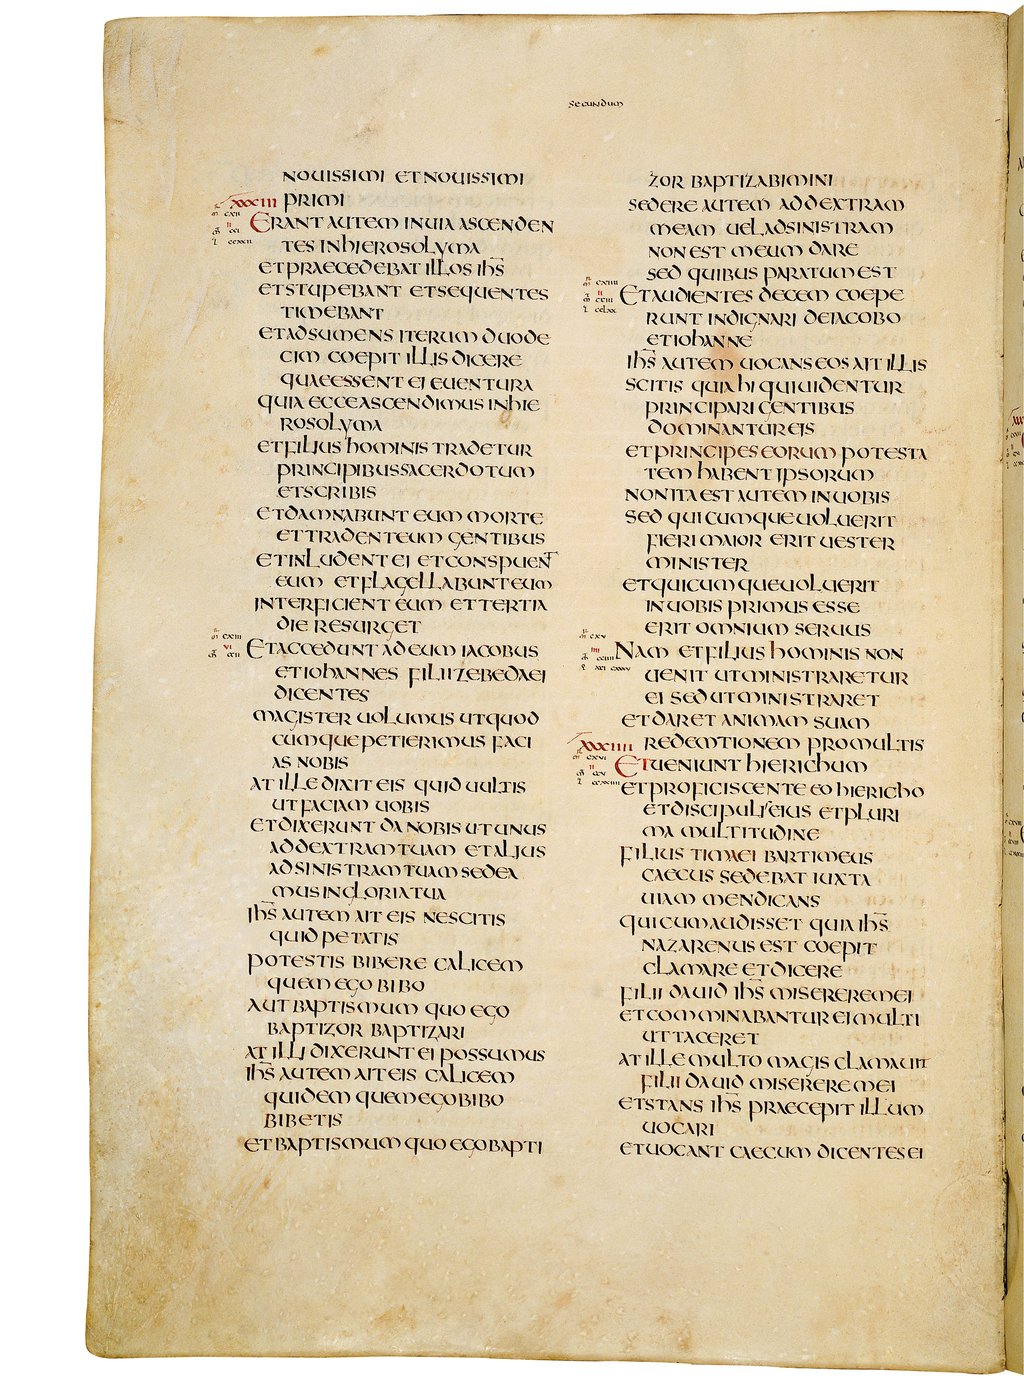 secundum
NOUISSIMI ET NOUISSIMI
XXXIII PRIMI
ERANT AUTEM IN UIA ASCENDEN
TES IN HIEROSOLYMA
ET PRAECEDEBAT ILLOS IHS
ET STUPEBANT ET SEQUENTES
TIMEBANT
ET ADSUMENS ITERUM DUODE
CIM COEPIT ILLIS DICERE
QUAE ESSENT EI EUENTURA
QUIA ECCE ASCENDIMUS IN HIE
ROSOLYMA
ET FILIUS HOMINIS TRADETUR
PRINCIPIBUS SACERDOTUM
ET SCRIBIS
ET DAMNABUNT EUM MORTE
ET TRADENT EUM GENTIBUS
ET INLUDENT EI ET CONSPUENT
EUM ET FLAGELLABUNT EUM
INTERFICIENT EUM ET TERTIA
DIE RESURGET
ET ACCEDUNT AD EUM IACOBUS
ET IOHANNES FILII ZEBEDAEI
DICENTES
MAGISTER UOLUMUS UT QUOD
CUMQUE PETIERIMUS FACI
AS NOBIS
AT ILLE DIXIT EIS QUID UULTIS
UT FACIAM UOBIS
ET DIXERUNT DA NOBIS UT UNUS
AD DEXTRAM TUAM ET ALIUS
AD SINISTRAM TUAM SEDEA
MUS IN GLORIA TUA
IHS AUTEM AIT EIS NESCITIS
QUID PETATIS
POTESTIS BIBERE CALICEM
QUEM EGO BIBO
AUT BAPTISMUM QUO EGO
BAPTIZOR BAPTIZARI
AT ILLI DIXERUNT EI POSSUMUS
IHS AUTEM AIT EIS CALICEM
QUIDEM QUEM EGO BIBO
BIBETIS
ET BAPTISMUM QUO EGO BAPTI
ZOR BAPTIZABIMINI
SEDERE AUTEM AD DEXTRAM
MEAM UEL AD SINISTRAM
NON EST MEUM DARE
SED QUIBUS PARATUM EST
ET AUDIENTES DECEM COEPE
RUNT INDIGNARI DE IACOBO
ET IOHANNE
IHS AUTEM UOCANS EOS AIT ILLIS
SCITIS QUIA HI QUI UIDENTUR
PRINCIPARI GENTIBUS
DOMINANTUR EIS
ET PRINCIPES EORUM POTESTA
TEM HABENT IPSORUM
NON ITA EST AUTEM IN UOBIS
SED QUICUMQUE UOLUERIT
FIERI MAIOR ERIT UESTER
MINISTER
ET QUICUMQUE UOLUERIT
IN UOBIS PRIMUS ESSE
ERIT OMNIUM SERUUS
NAM ET FILIUS HOMINIS NON
UENIT UT MINISTRARETUR
EI SED UT MINISTRARET
ET DARET ANIMAM SUAM
XXXIIII REDEMTIONEM PRO MULTIS
ET UENIUNT HIERICHUM
ET PROFICISCENTE EO HIERICHO
ET DISCIPULIS EIUS ET PLURI
MA MULTITUDINE
FILIUS TIMAEI BARTIMEUS
CAECUS SEDEBAT IUXTA
UIAM MENDICANS
QUI CUM AUDISSET QUIA IHS
NAZARENUS EST COEPIT
CLAMARE ET DICERE
FILII DAUID IHS MISERERE MEI
ET COMMINABANTUR EI MULTI
UT TACERET
AT ILLE MULTO MAGIS CLAMAUIT
FILII DAUID MISERERE MEI
ET STANS IHS PRAECEPIT ILLUM
UOCARI
ET UOCANT CAECUM DICENTES EI